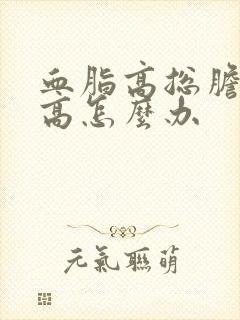 血脂高总膽
高怎麼办
元氣聯萌